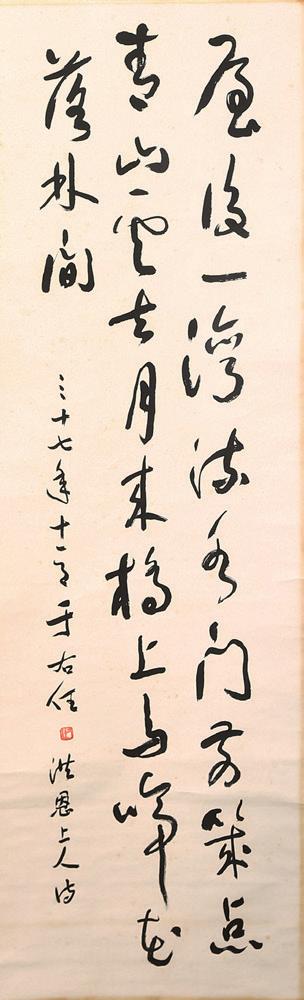 屋後一灣流水門前幾點
青山雲去月來橋上鳥啼花
落林間
三十七年十一月于右任
洪恩上人詩